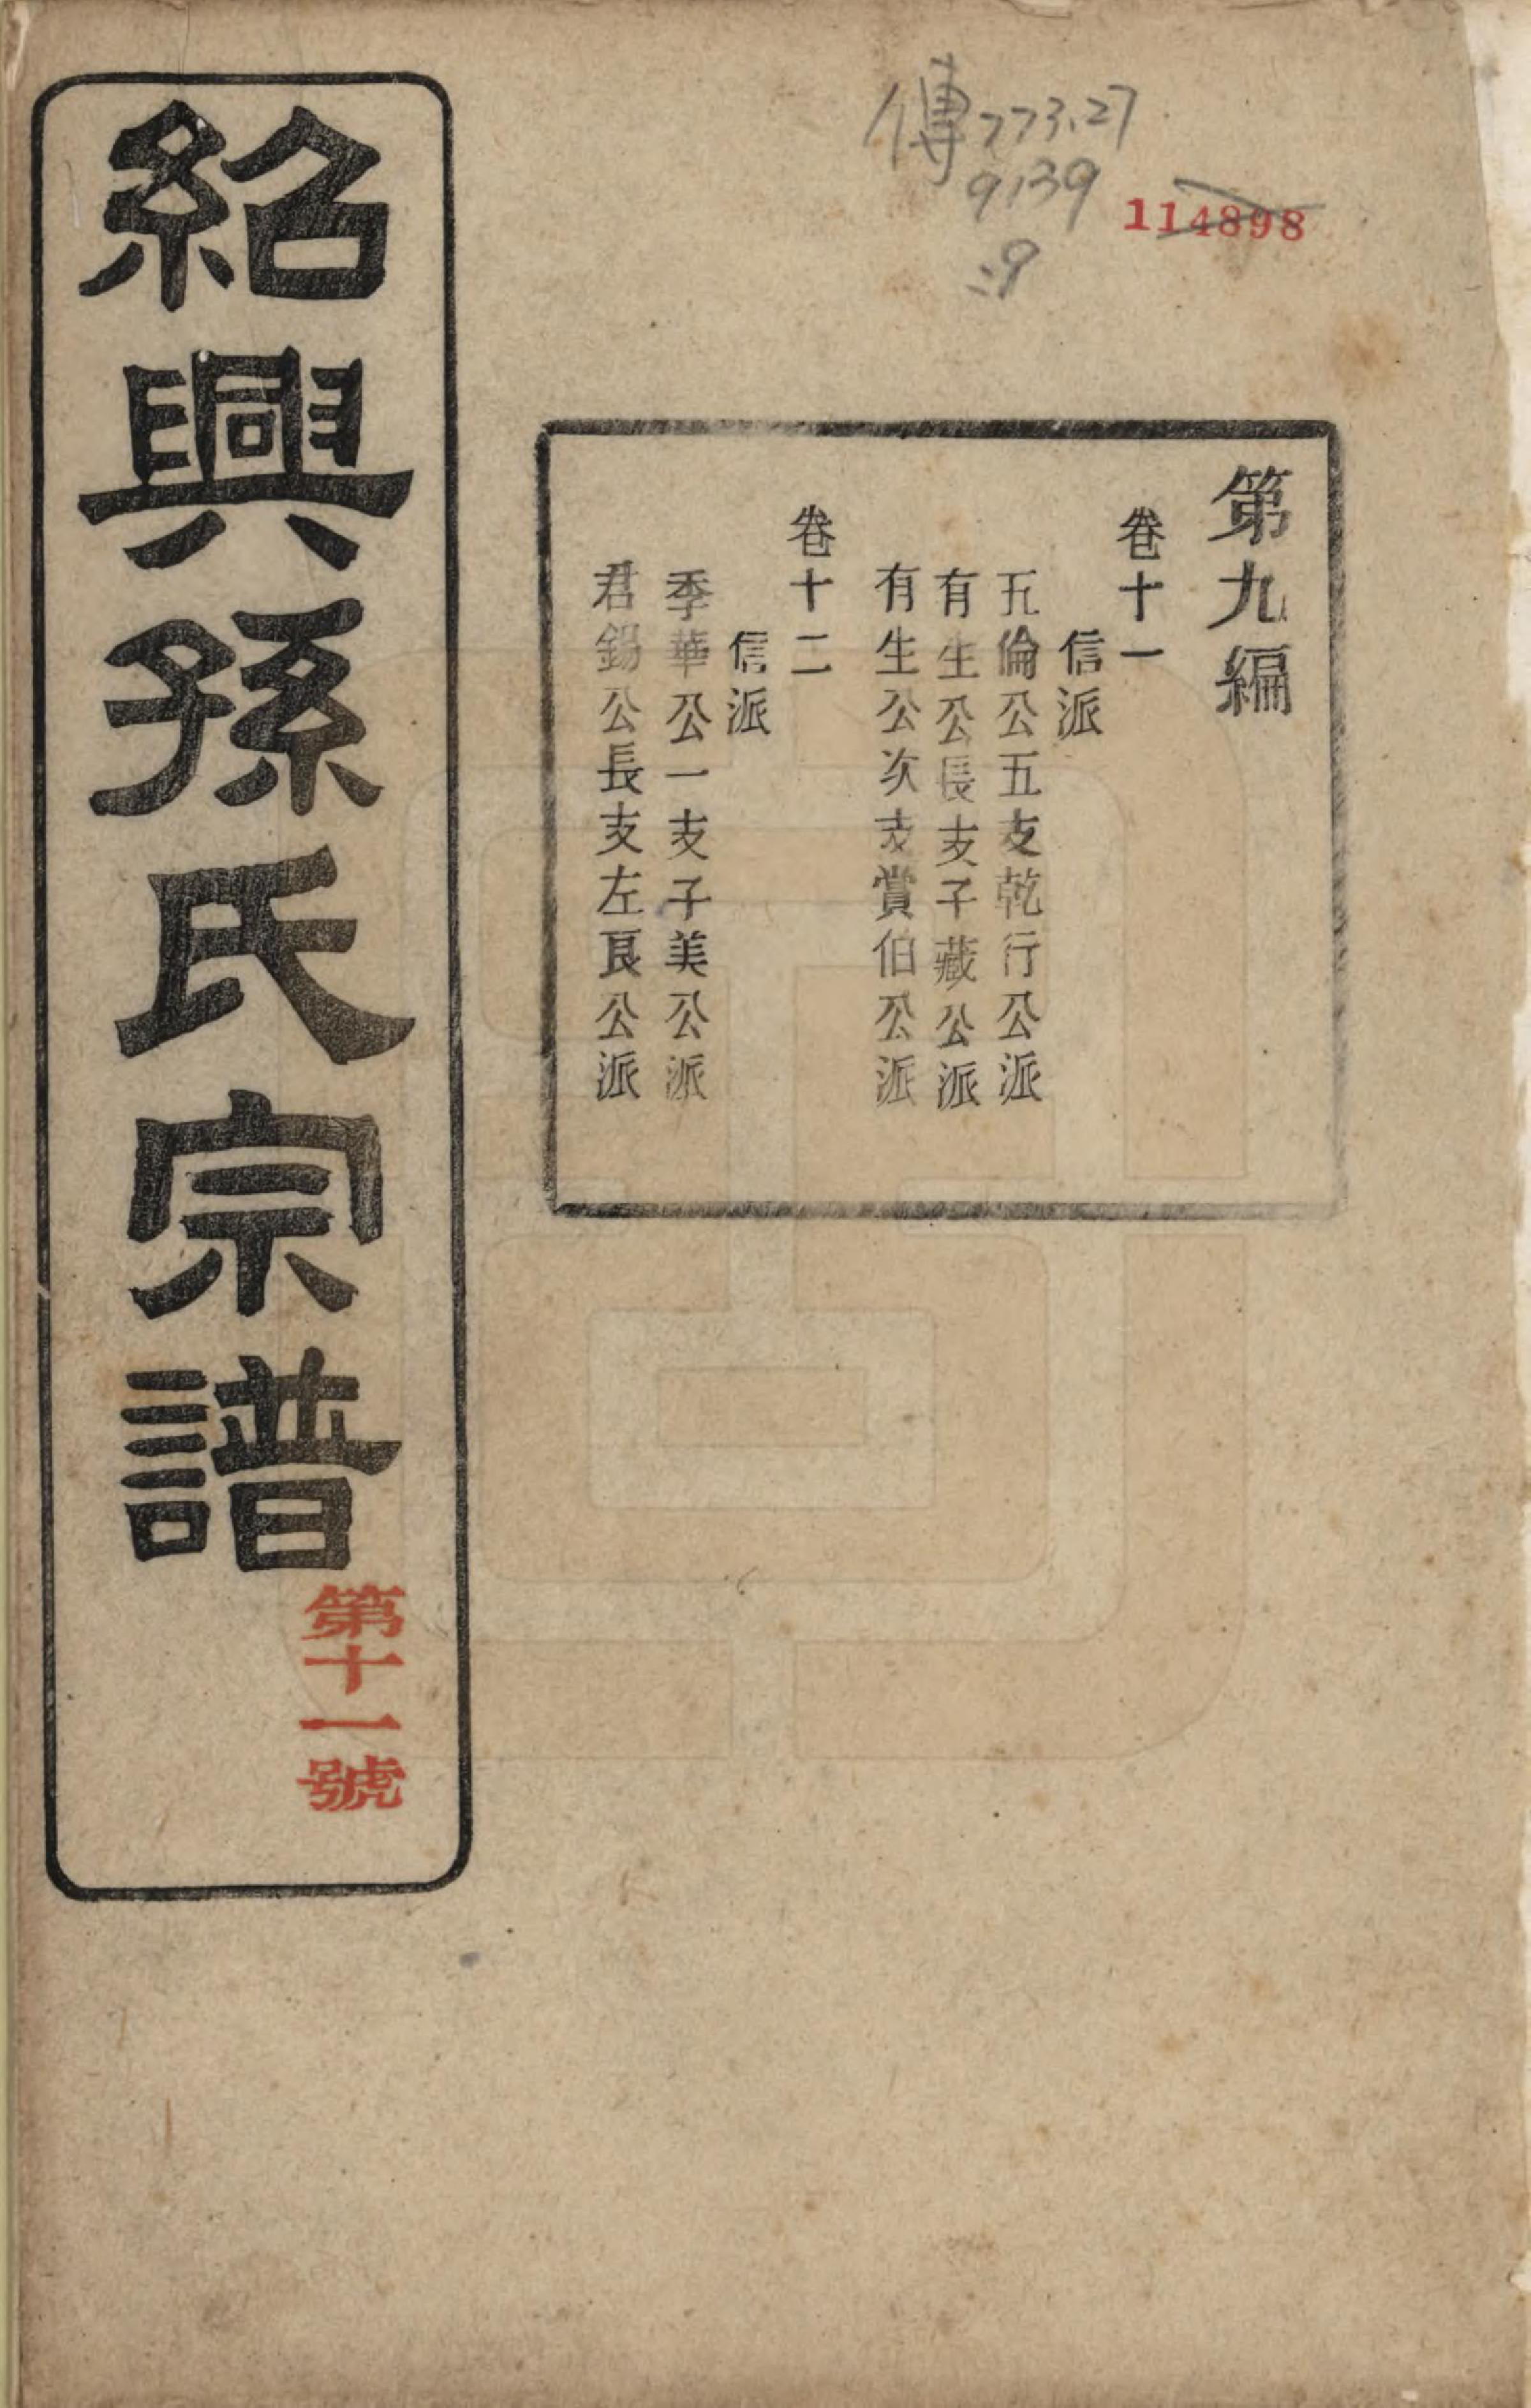 紹興孫氏宗譜
第十一號
傳773.27
9139
:9
114898
第九編
卷十一
信派
五倫公五支乾行公派
有生公長支子藏公派
有生公次支賞伯公派
卷十二
信派
季華公一支子美公派
君錫公長支左良公派